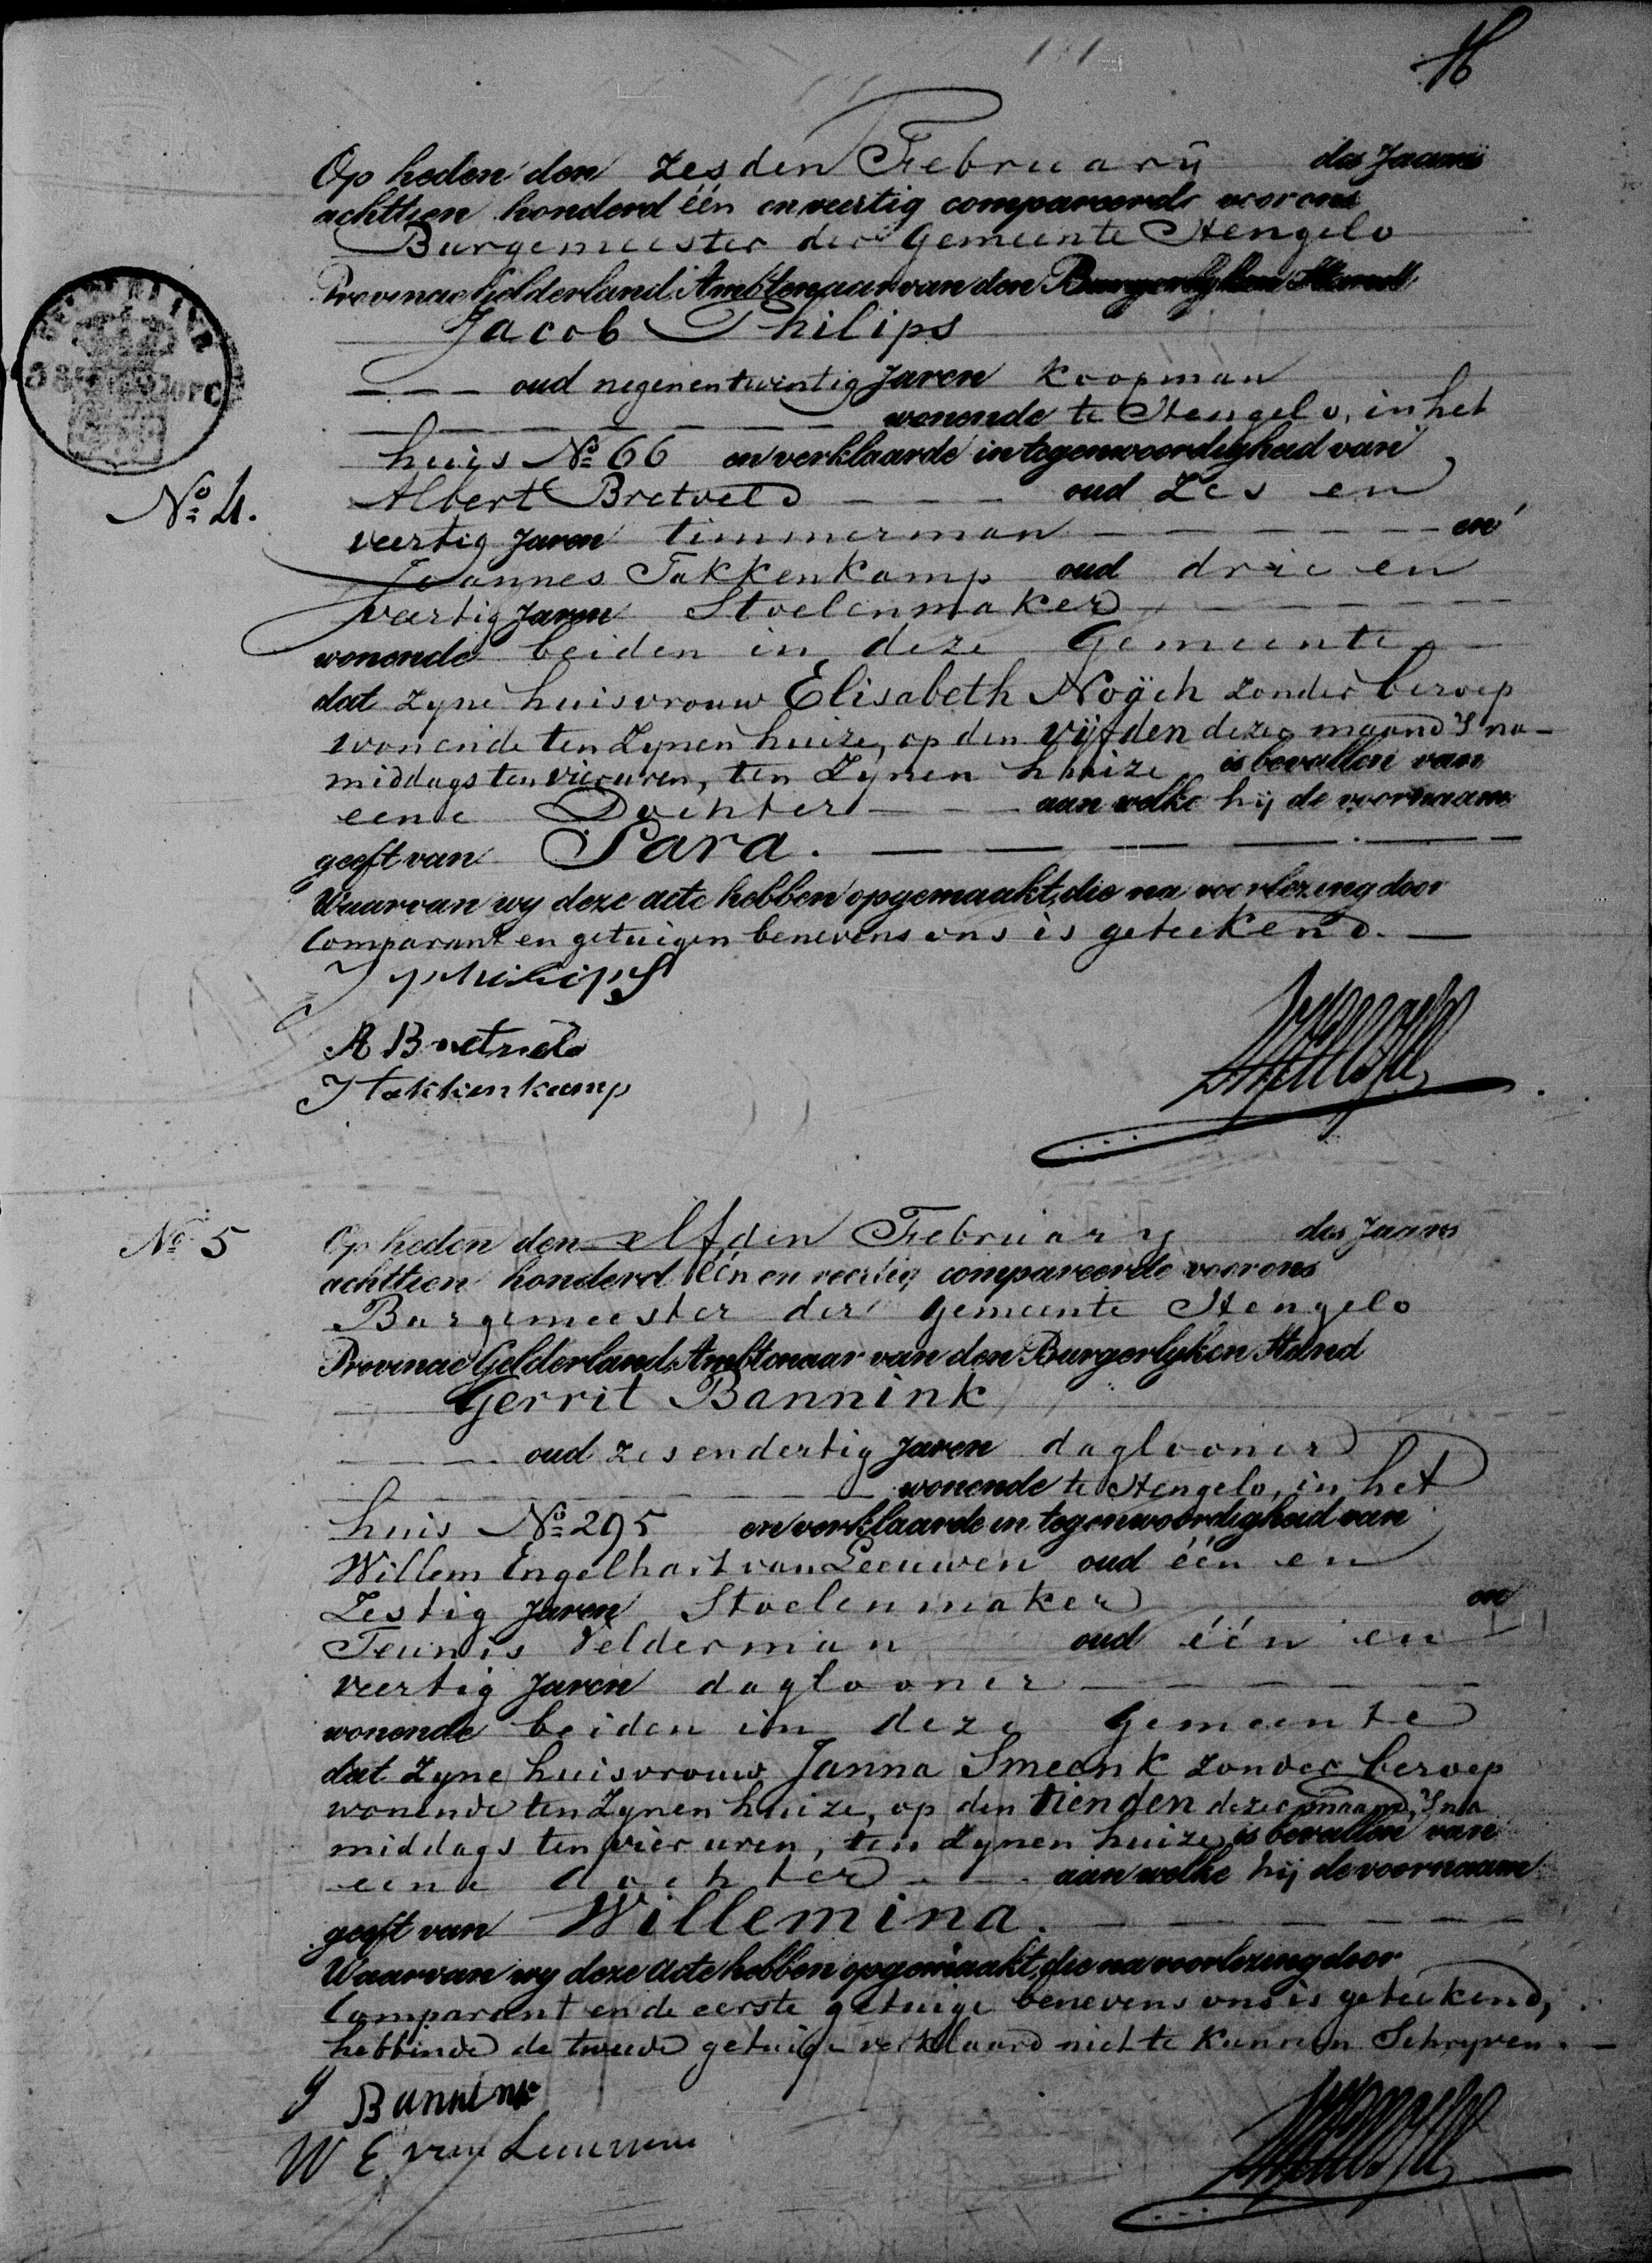 Op heden den zesden February des Jaars
achttien honderd één en veertig compareerde voor ons
Burgemeester der Gemeente Hengelo
Provincie Gelderland, Ambtenaar van den Burgerlyken Stand
Jacob Philips
oud negenentwintig Jaren Koopman
wonende te Hengelo, in het
huis No 66 en verklaarde in tegenwoordigheid van
No 4.
Albert Bretveld oud Zes en
veertig Jaren timmerman en
Joannes Takkenkamp oud drie en
veertig Jaren Stoelenmaker
wonende beiden in deze Gemeente
dat zyne huisvrouw Elisabeth Noÿch zonder beroep
wonende ten zynen huize, op den vijfden dezer maand 's na-
middags ten vier uren, ten Zynen huize is bevallen van
eene Dochter aan welke hij de voornaam
geeft van Sara.
Waarvan wy deze acte hebben opgemaakt, die na voorlezing door
Comparant en getuigen benevens ons is geteekend.
J Philips
A Bretveld
J takkenkamp
No 5
Op heden den elfden February des Jaars
achttien honderd één en veertig compareerde voor ons
Burgemeester der Gemeente Hengelo
Provincie Gelderland, Ambtenaar van den Burgerlyken Stand
Gerrit Bannink
oud zesendertig Jaren daglooner
wonende te Hengelo, in het
huis No 295 en verklaarde in tegenwoordigheid van
Willem Engelhart van Leeuwen oud één en
Zestig Jaren Stoelenmaker en
Teunis Velderman oud één en
veertig Jaren daglooner
wonende beiden in deze Gemeente
dat Zyne huisvrouw Janna Smeenk zonder beroep
wonende ten Zynen huize, op den tienden dezer maand, 's na
middags ten vier uren, ten Zynen huize, is bevallen van
eene dochter aan welke hij de voornaam
geeft van Willemina.
Waarvan wy deze acte hebben opgemaakt, die na voorlezing door
Comparant en de eerste getuige benevens ons is geteekend,
hebbende de tweede getuige verklaard niet te kunnen Schryven.
G Bannink
W E van Leeuwen